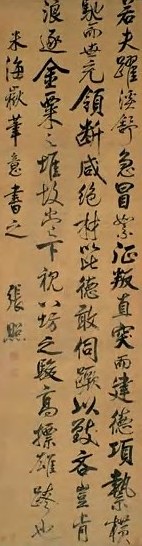 若夫躍溪舒急冒絮征叛直突而建德項縶橫
馳而世充領斷咸絕材以比德敢伺蹶以致吝豈肯
浪逐金粟之堆故當下視八坊之駿高標雄跨也
米海嶽筆意書之 張照